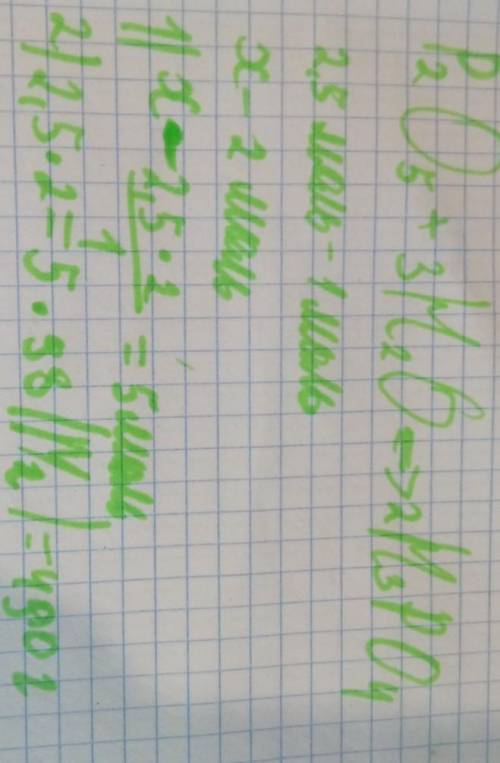 P₂O₅ + 3H₂O → 2H₃PO₄
2,5 моль - 1 моль
x - 2 моль
1) x - 2,5 · 2 / 1 = 5 моль
2) 2,5 · 2 = 5 · 98 = 490 г